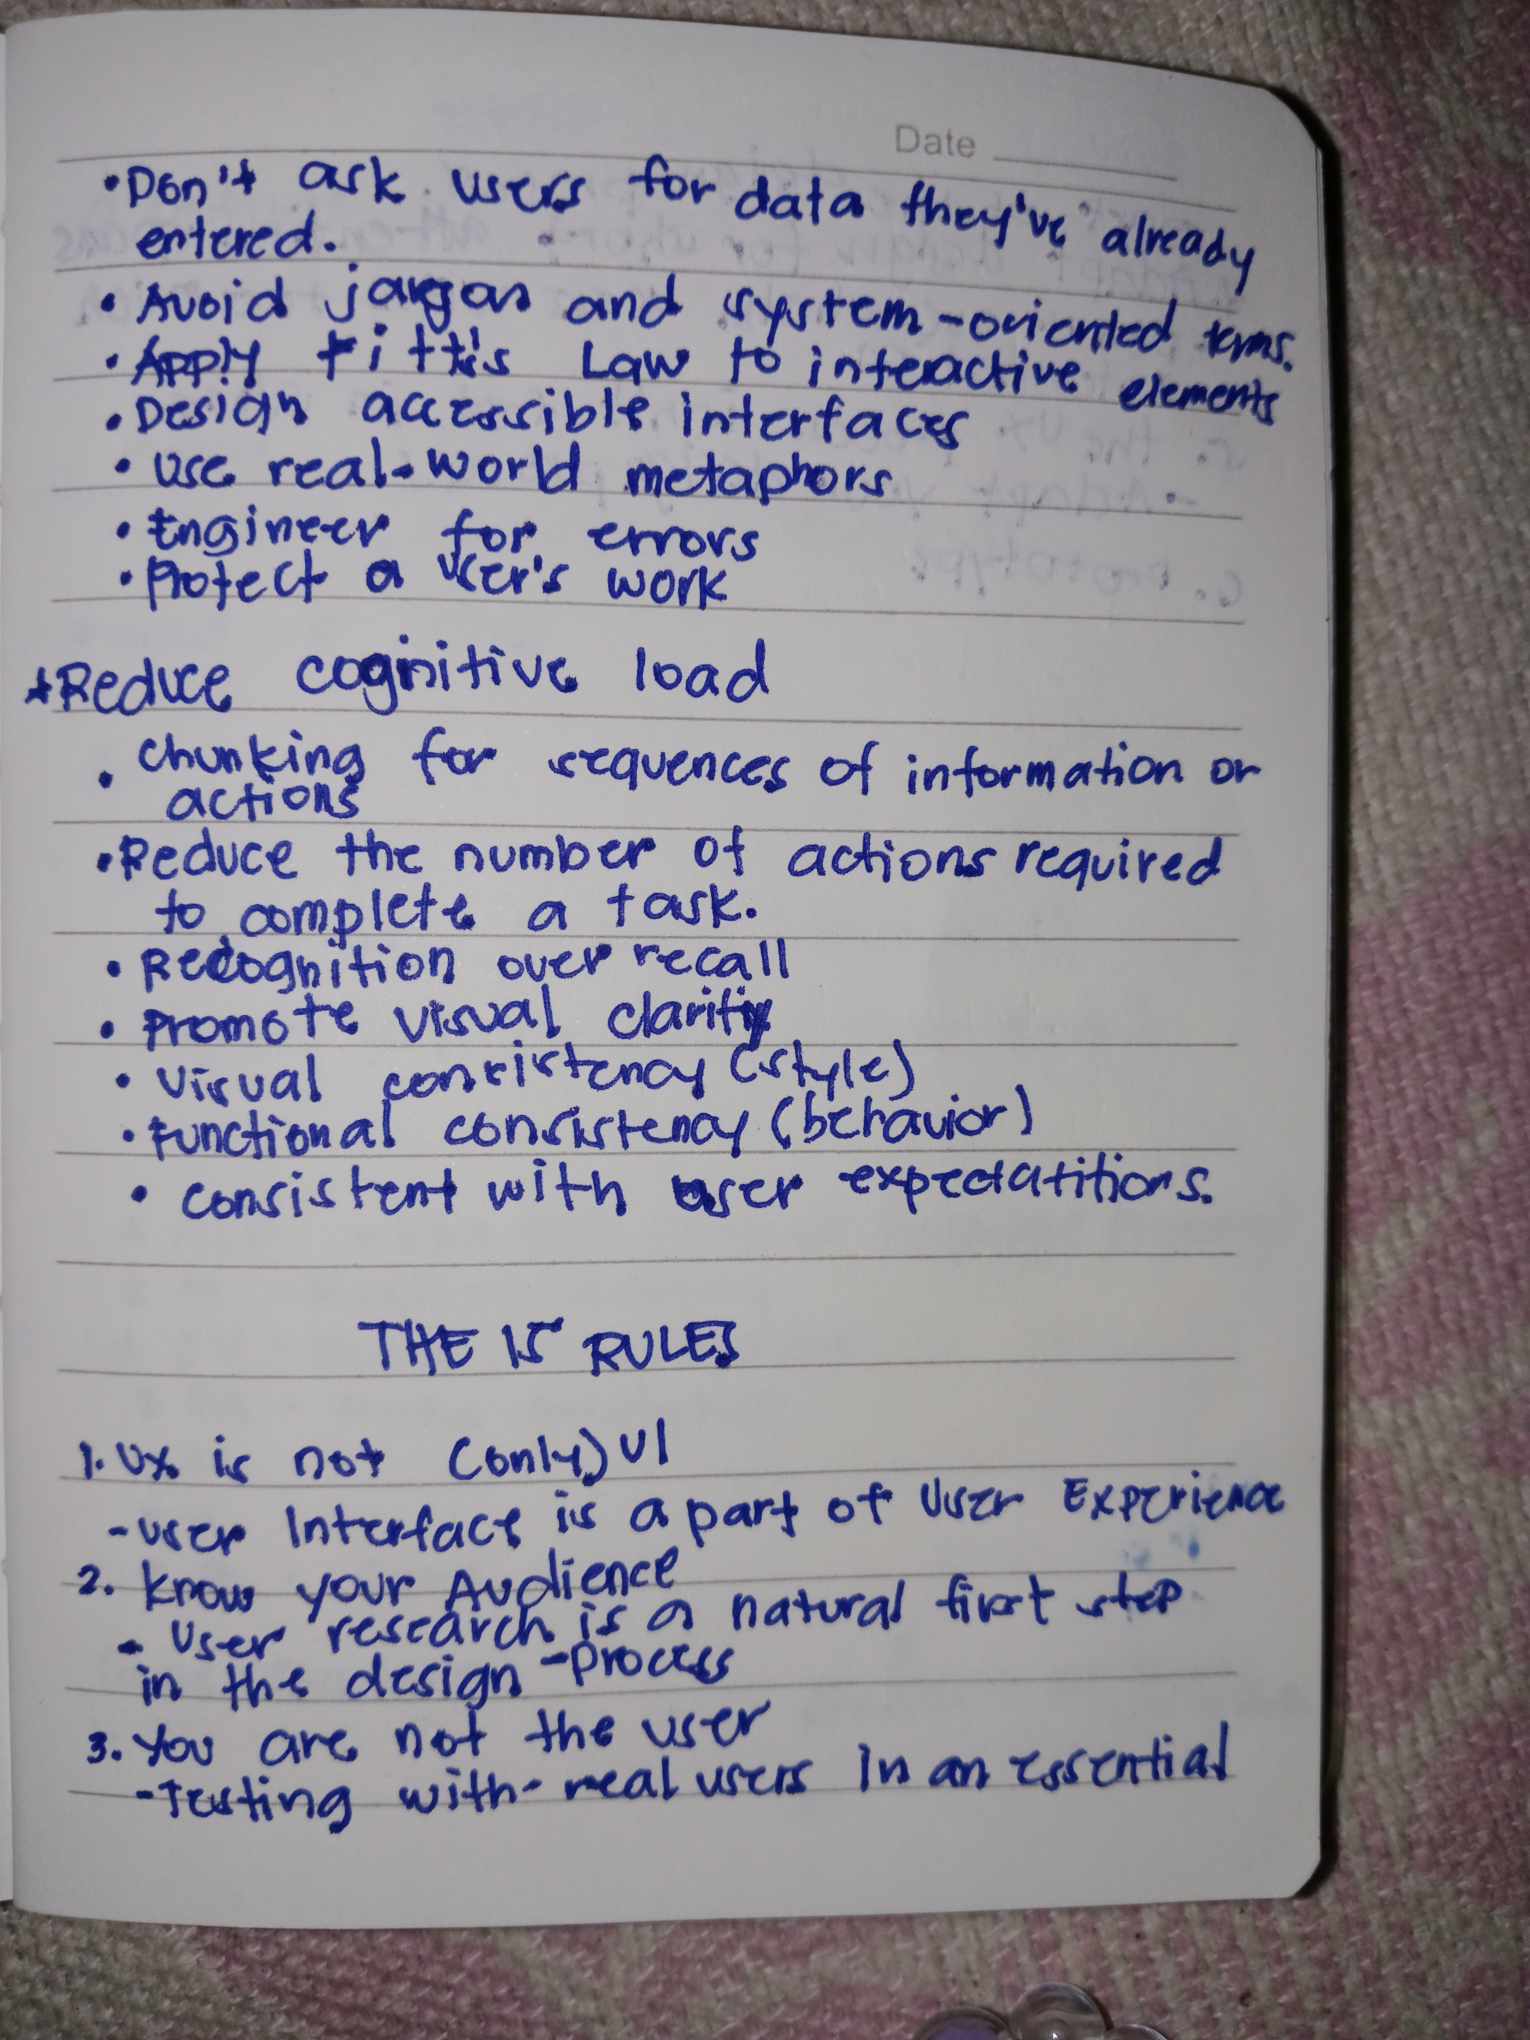 Date
• Don't ask users for data they've already
entered.
• Avoid jargon and system-oriented terms.
• Apply Fitt's Law to interactive elements
• Design accessible interfaces
• Use real-world metaphors
• Engineer for errors
• Protect a user's work
*Reduce cognitive load
• Chunking for sequences of information or
actions
• Reduce the number of actions required
to complete a task.
• Recognition over recall
• Promote visual clarity
• Visual consistency (style)
• Functional consistency (behavior)
• Consistent with user expectatitions.
THE 15 RULES
1. UX is not (only) UI
- User Interface is a part of User Experience
2. Know your Audience
- User research is a natural first step
in the design-process
3. You are not the user
- Testing with real users In an essential